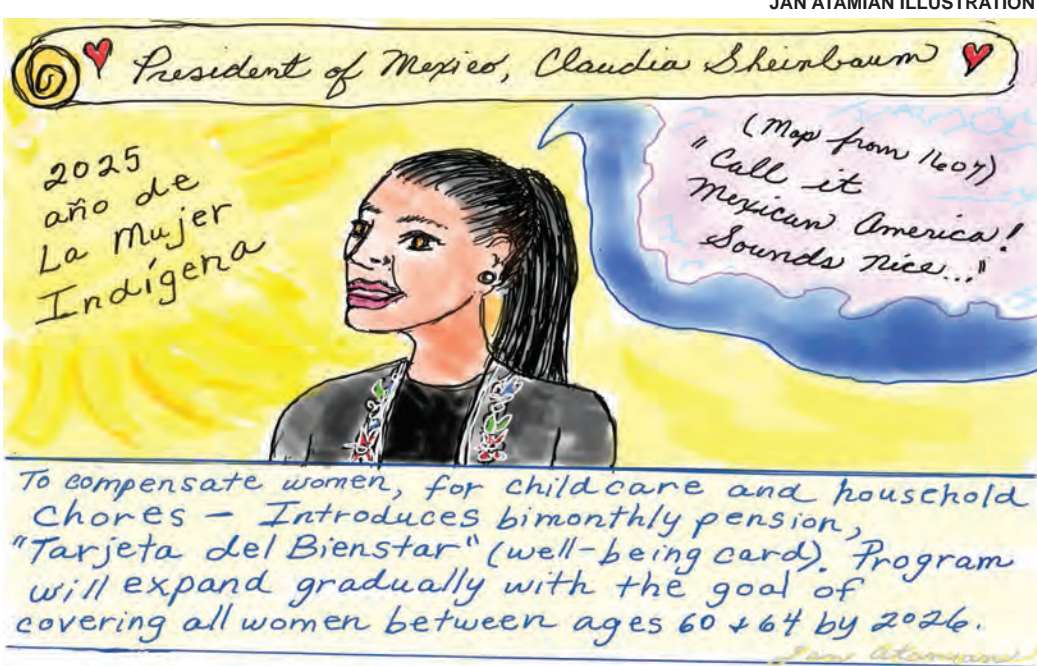 JAN ATAMIAN ILLUSTRATION
President of Mexico, Claudia Sheinbaum
2025
año de
La Mujer
Indígena
(Map from 1607)
"Call it
Mexican America!
Sounds nice..."
To compensate women, for childcare and household
chores - Introduces bimonthly pension,
"Tarjeta del Bienstar" (well-being card). Program
will expand gradually with the goal of
covering all women between ages 60 + 64 by 2026.
Jan Atamian